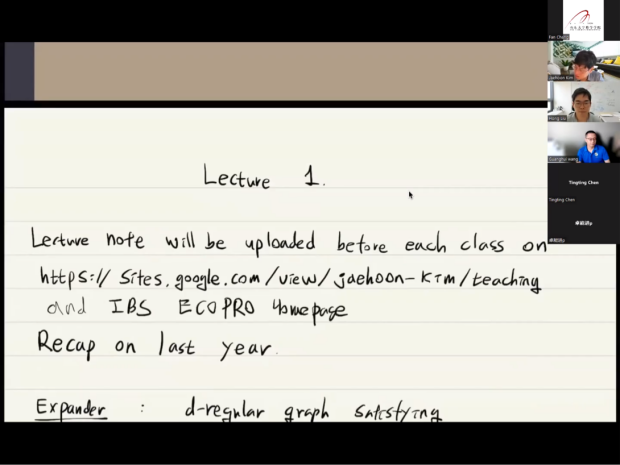 Lecture 1.
Lecture note will be uploaded before each class on
https://sites.google.com/view/jaehoon-kim/teaching
and IBS ECOPRO homepage
Recap on last year.
Expander : d-regular graph satisfying
Tingting Chen
Tingting Chen